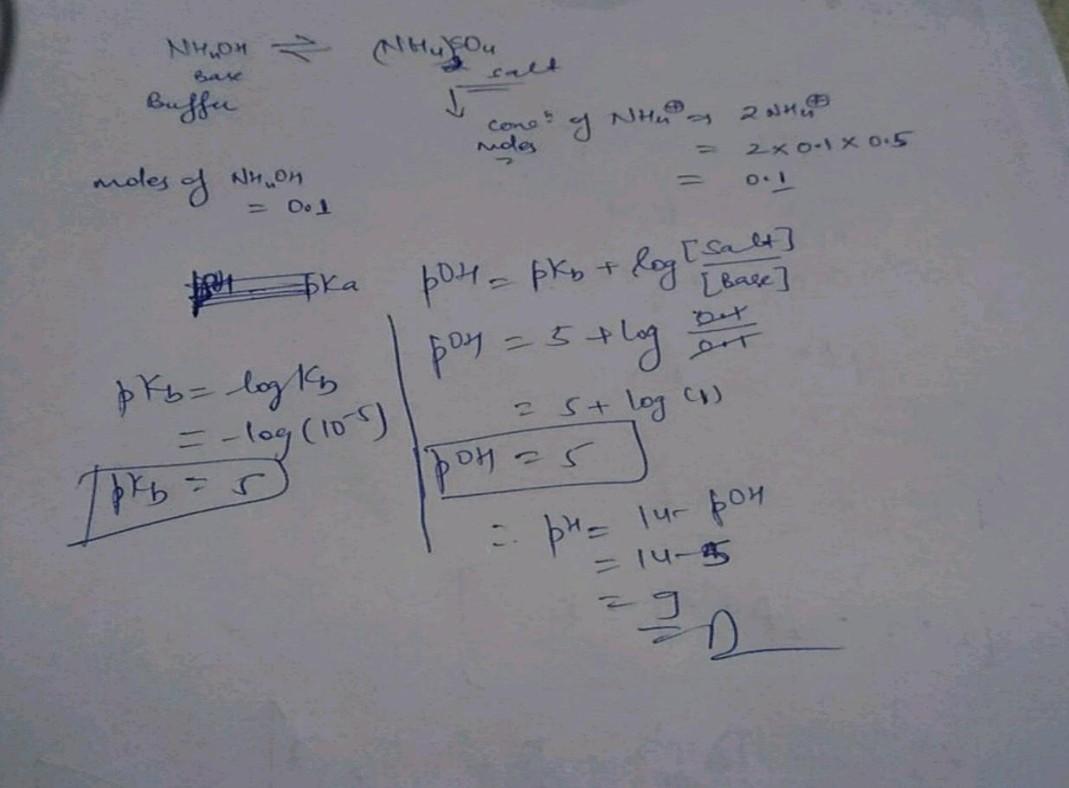 NH₄OH ⇌ (NH₄)₂SO₄
Base salt
Buffer
↓ concⁿ of NH₄⊕ ⇒ 2NH₄⊕
moles = 2×0.1×0.5
= 0.1
moles of NH₄OH
= 0.1
pKa
pOH = pKb + log [Salt]/[Base]
pOH = 5 + log 0.1/0.1
= 5 + log (1)
pOH = 5
pKb = log Kb
= -log(10⁻⁵)
pKb = 5
∴ pH = 14 - pOH
= 14-5
= 9